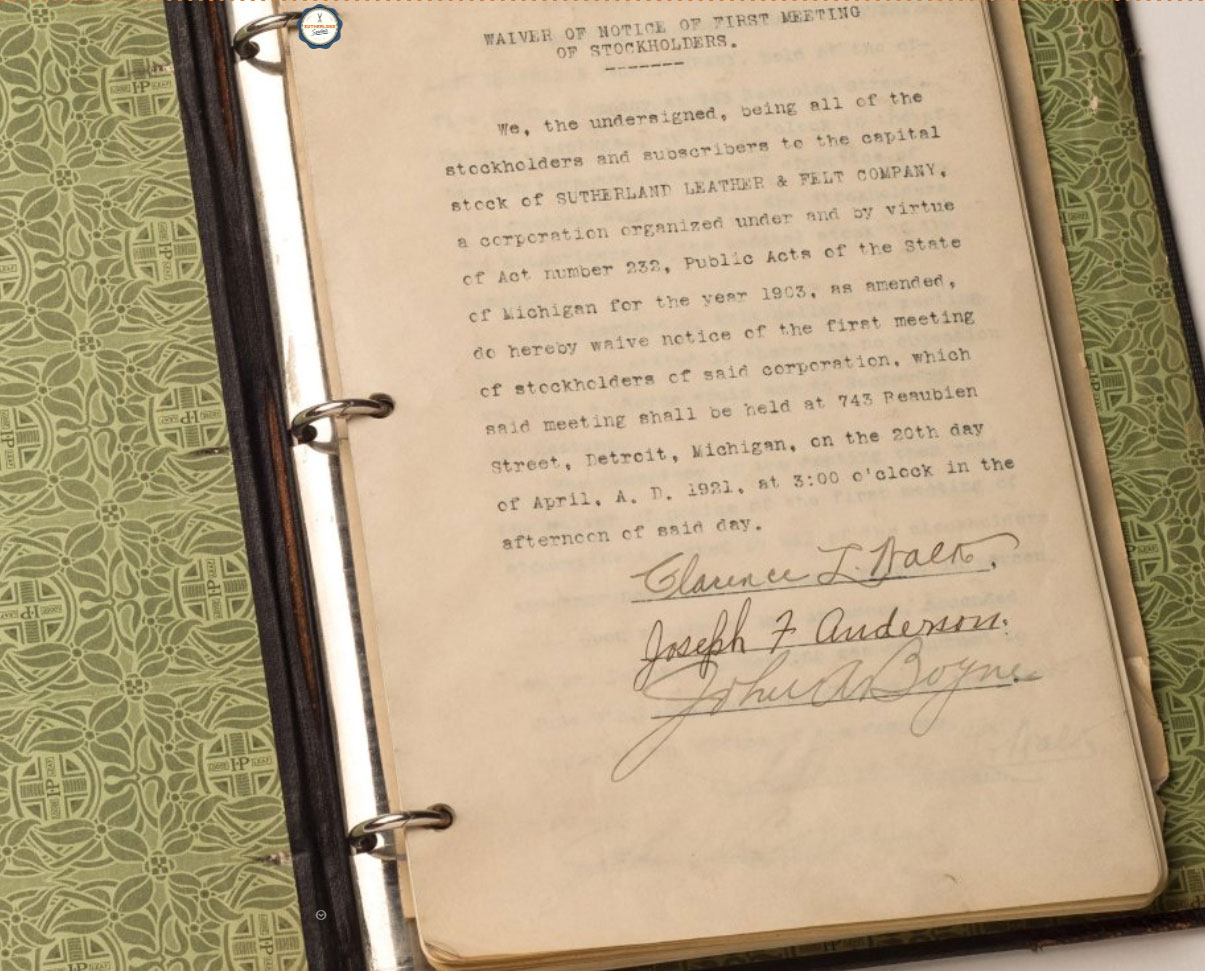 WAIVER OF NOTICE OF FIRST MEETING
OF STOCKHOLDERS.
-------
We, the undersigned, being all of the
stockholders and subscribers to the capital
stock of SUTHERLAND LEATHER & FELT COMPANY,
a corporation organized under and by virtue
of Act number 232, Public Acts of the State
of Michigan for the year 1903, as amended,
do hereby waive notice of the first meeting
of stockholders of said corporation, which
said meeting shall be held at 743 Beaubien
Street, Detroit, Michigan, on the 20th day
of April, A. D. 1921, at 3:00 o'clock in the
afternoon of said day.
Clarence L. Walk.
Joseph F Anderson.
John A Boyne.
SUTHERLAND
I-P
LOOSE I-P LEAF